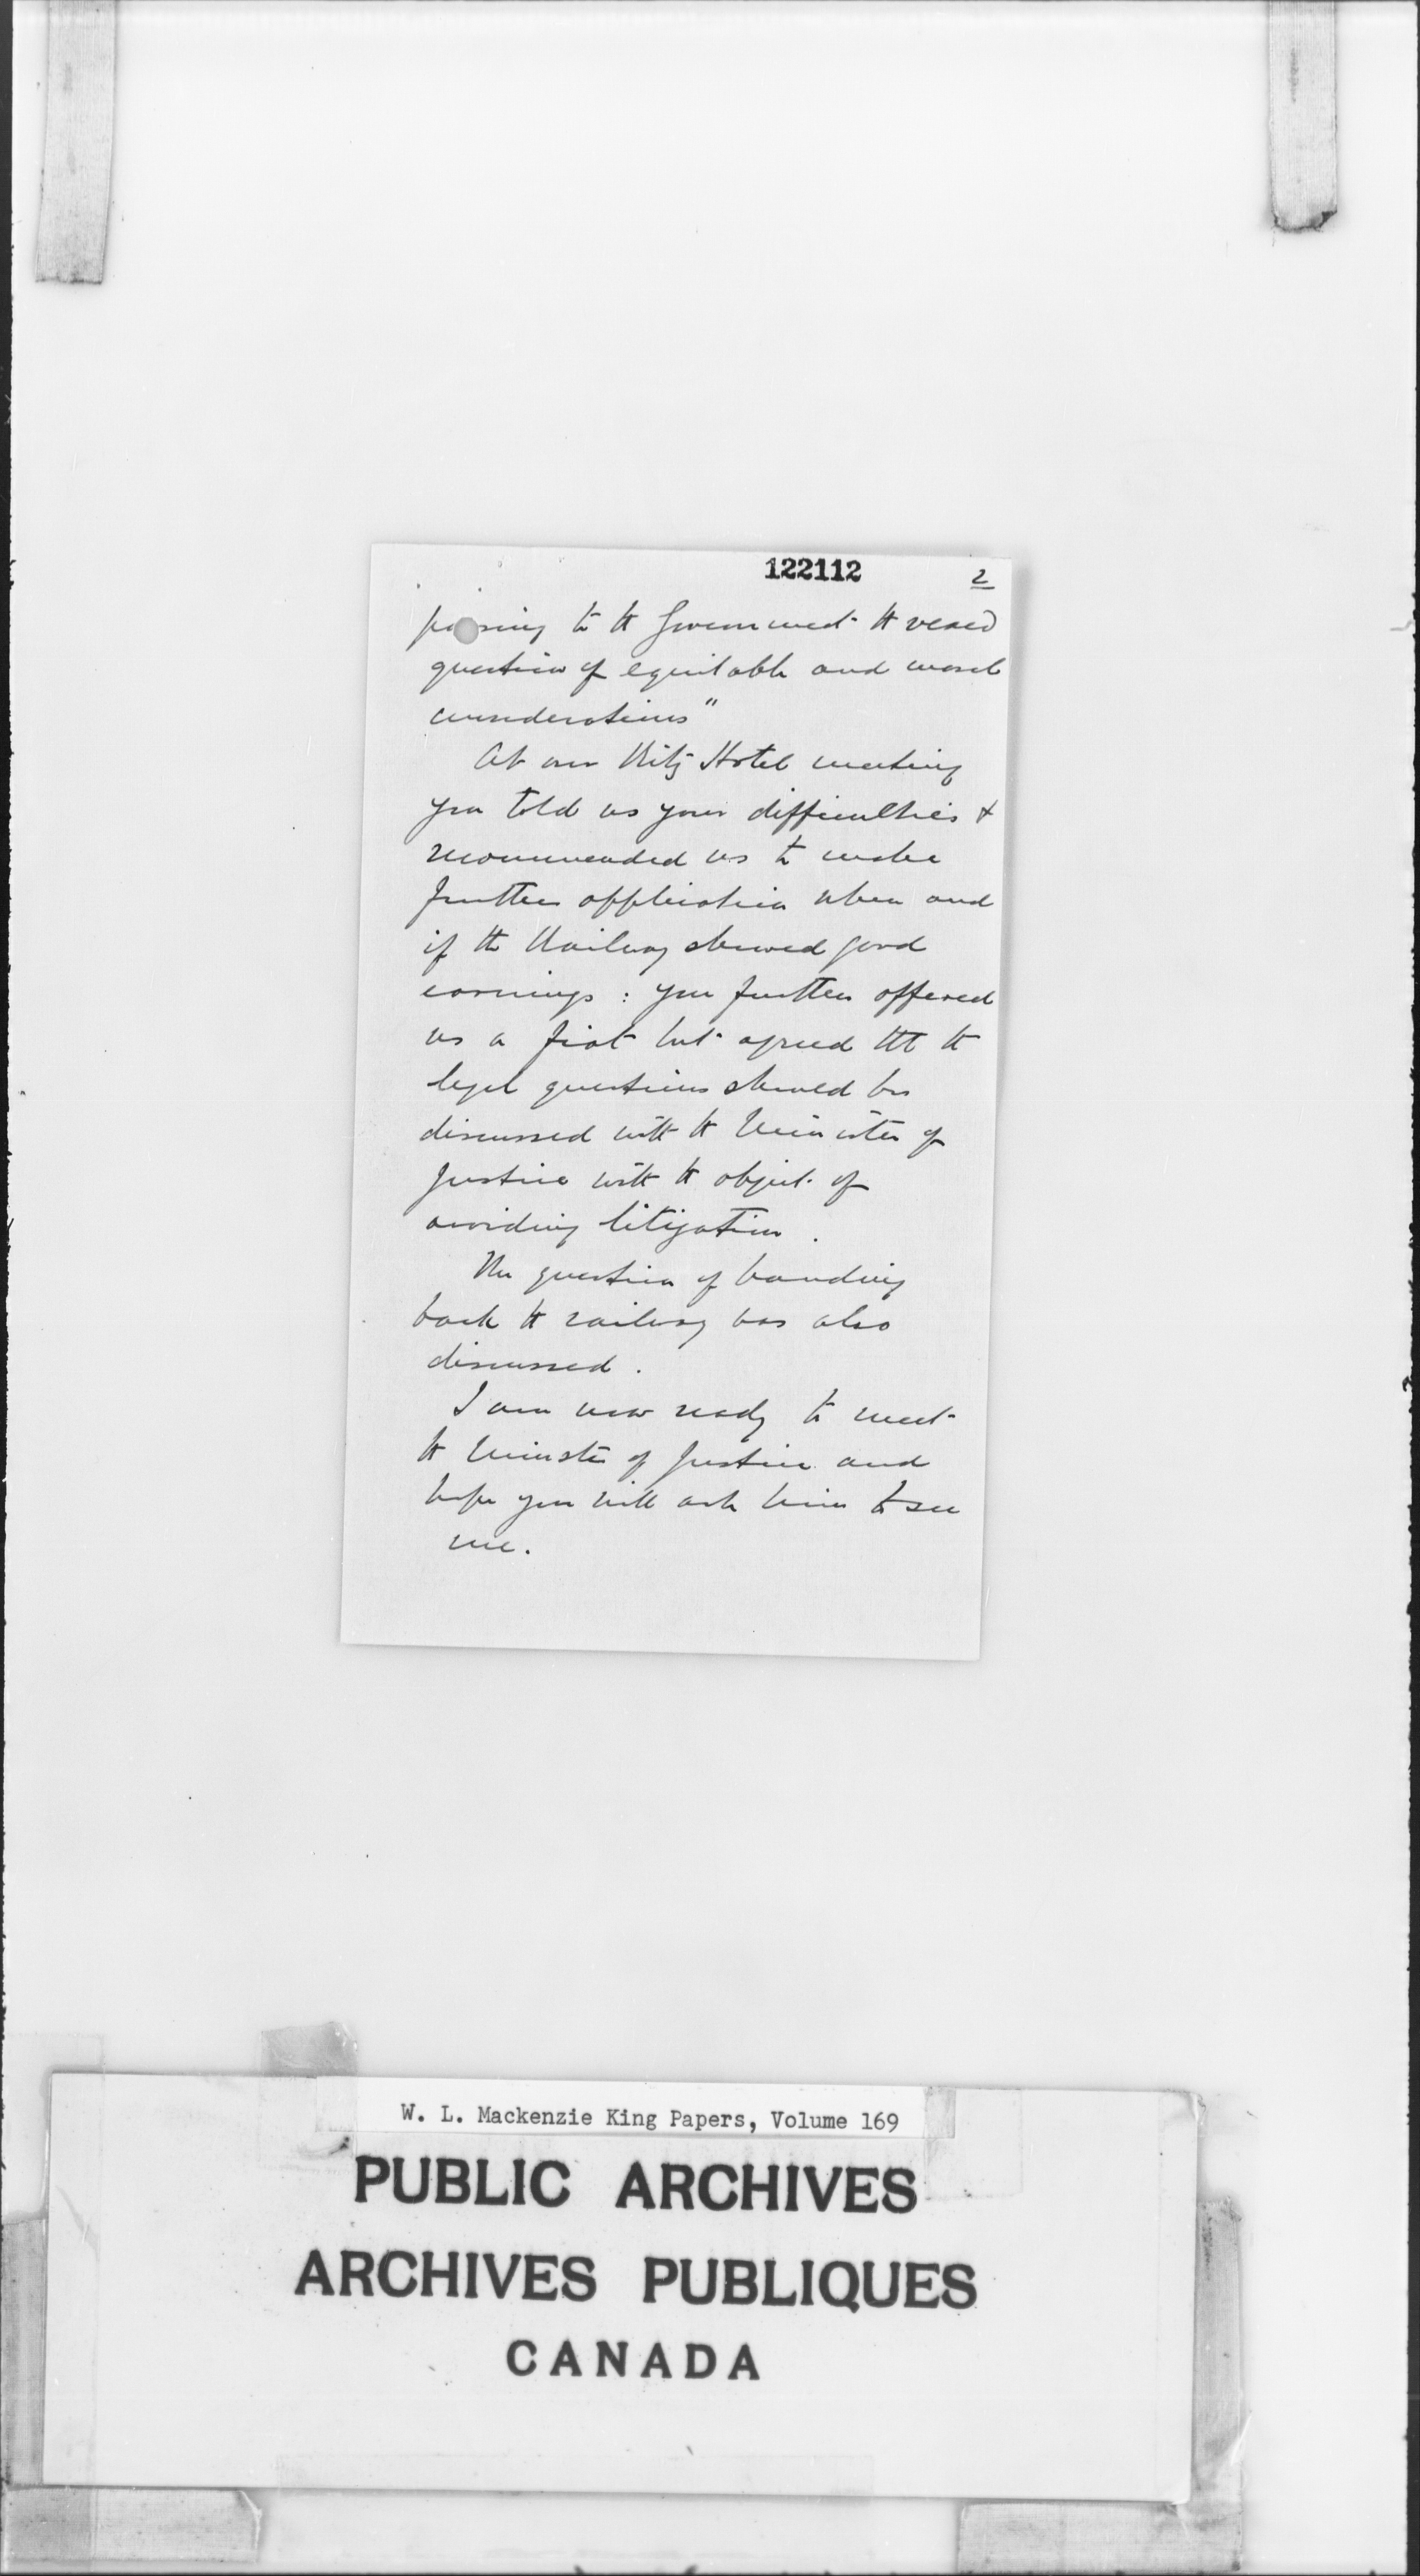 122112 2
passing to the Government the vexed
question of equitable and moral
considerations"
At our Ritz Hotel meeting
you told us your difficulties &
recommended us to make
further application when and
if the Railway shewed good
earnings : you further offered
us a fiat but agreed tht the
legal questions should be
discussed with the Minister of
Justice with the object of
avoiding litigation .
The question of handing
back the railway was also
discussed .
I am now ready to meet
the Minister of Justice and
hope you will ask him to see
me.
W. L. Mackenzie King Papers, Volume 169
PUBLIC ARCHIVES
ARCHIVES PUBLIQUES
CANADA